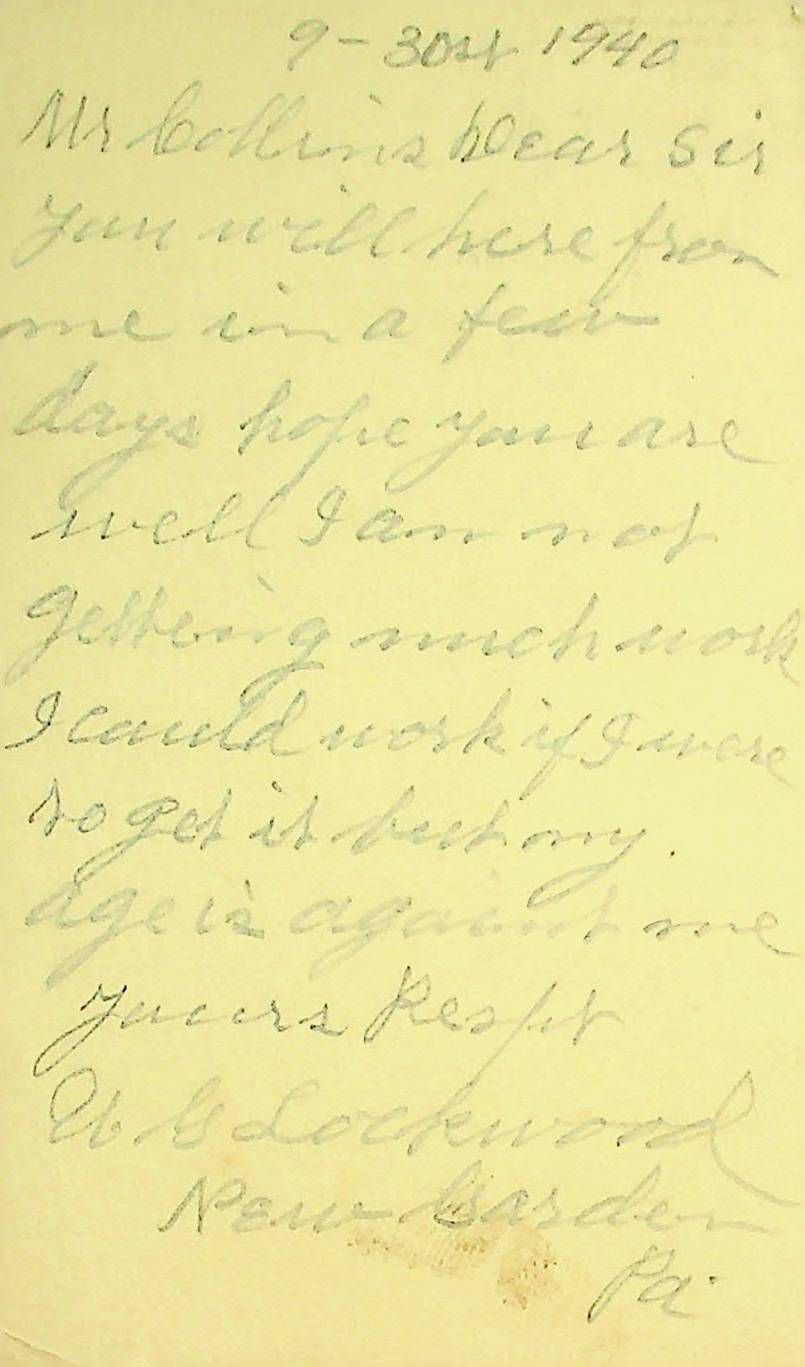 9-30st 1940
Mr Collins Dear Sir
you will here from
me in a few
days hope you are
well I am not
getteing much work
I could work if I were
to get it but my
age is against me
yours Respt
U G Lockwood
New Garden
Pa.